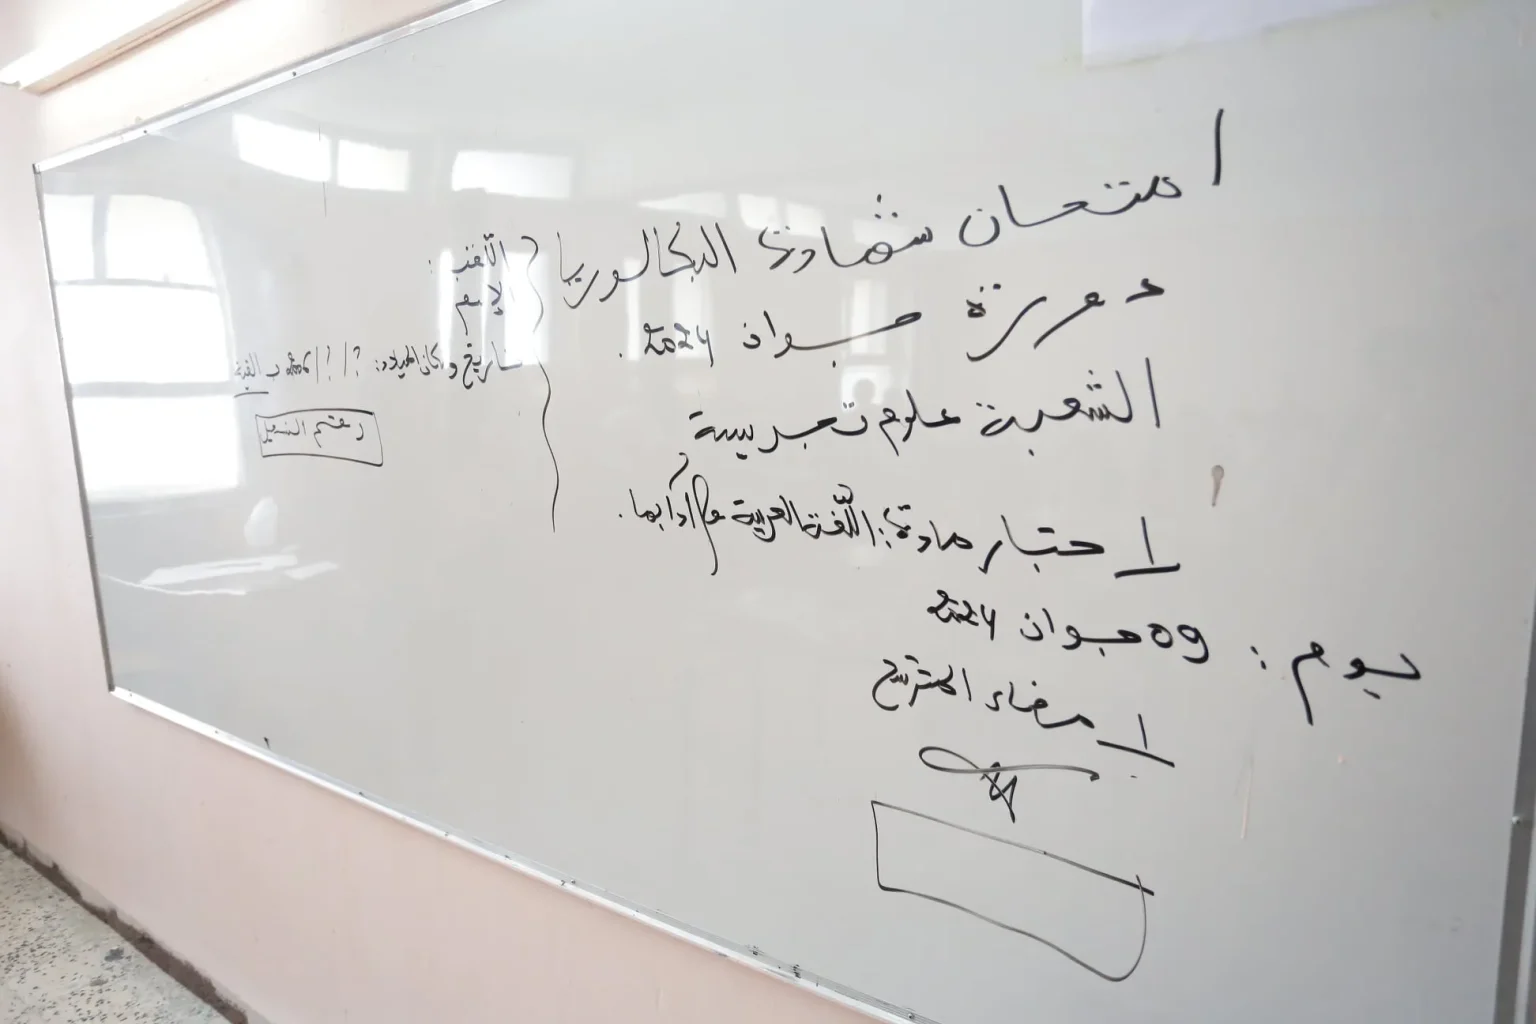 امتحان شهادة البكالوريا
دورة جوان 2024.
الشعبة علوم تجريبية
اختبار مادة: اللّغة العربية وآدابها.
يوم: 09 جوان 2024
إمضاء المترشح
اللّقب:
الإسم
تاريخ ومكان الميلاد: ؟/؟/ ب
رقم التسجيل